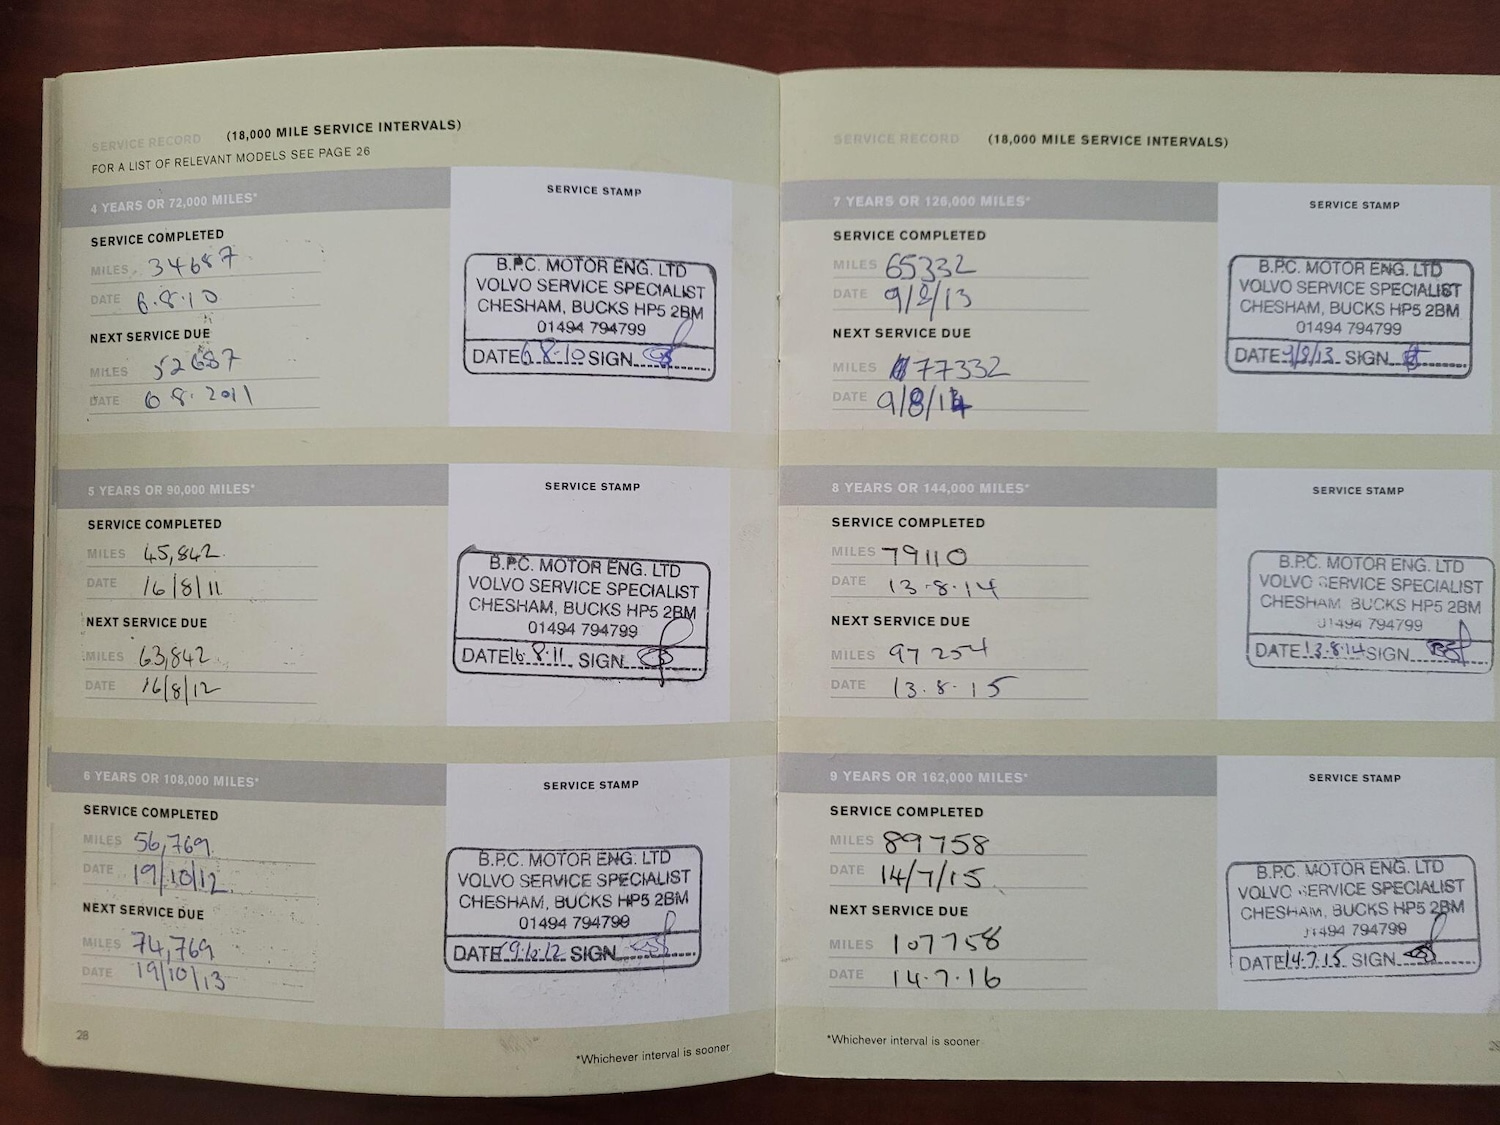 SERVICE RECORD (18,000 MILE SERVICE INTERVALS)
FOR A LIST OF RELEVANT MODELS SEE PAGE 26
4 YEARS OR 72,000 MILES*
SERVICE STAMP
SERVICE COMPLETED
MILES 34687
DATE 6.8.10
NEXT SERVICE DUE
MILES 52687
DATE 6 8. 2011
B.P.C. MOTOR ENG. LTD
VOLVO SERVICE SPECIALIST
CHESHAM, BUCKS HP5 2BM
01494 794799
DATE 6.8.10 SIGN
5 YEARS OR 90,000 MILES*
SERVICE STAMP
SERVICE COMPLETED
MILES 45,842
DATE 16/8/11
NEXT SERVICE DUE
MILES 63,842
DATE 16/8/12
B.P.C. MOTOR ENG. LTD
VOLVO SERVICE SPECIALIST
CHESHAM, BUCKS HP5 2BM
01494 794799
DATE 16.8.11 SIGN
6 YEARS OR 108,000 MILES*
SERVICE STAMP
SERVICE COMPLETED
MILES 56,769
DATE 19/10/12
NEXT SERVICE DUE
MILES 74,769
DATE 19/10/13
B.P.C. MOTOR ENG. LTD
VOLVO SERVICE SPECIALIST
CHESHAM, BUCKS HP5 2BM
01494 794799
DATE 19.10.12 SIGN
28
*Whichever interval is sooner
SERVICE RECORD (18,000 MILE SERVICE INTERVALS)
7 YEARS OR 126,000 MILES*
SERVICE STAMP
SERVICE COMPLETED
MILES 65332
DATE 9/8/13
NEXT SERVICE DUE
MILES 77332
DATE 9/8/14
B.P.C. MOTOR ENG. LTD
VOLVO SERVICE SPECIALIST
CHESHAM, BUCKS HP5 2BM
01494 794799
DATE 9/8/13 SIGN
8 YEARS OR 144,000 MILES*
SERVICE STAMP
SERVICE COMPLETED
MILES 79110
DATE 13.8.14
NEXT SERVICE DUE
MILES 97254
DATE 13.8.15
B.P.C. MOTOR ENG. LTD
VOLVO SERVICE SPECIALIST
CHESHAM BUCKS HP5 2BM
01494 794799
DATE 13.8.14 SIGN
9 YEARS OR 162,000 MILES*
SERVICE STAMP
SERVICE COMPLETED
MILES 89758
DATE 14/7/15
NEXT SERVICE DUE
MILES 107758
DATE 14.7.16
B.P.C. MOTOR ENG. LTD
VOLVO SERVICE SPECIALIST
CHESHAM, BUCKS HP5 2BM
01494 794799
DATE 14.7.15 SIGN
*Whichever interval is sooner